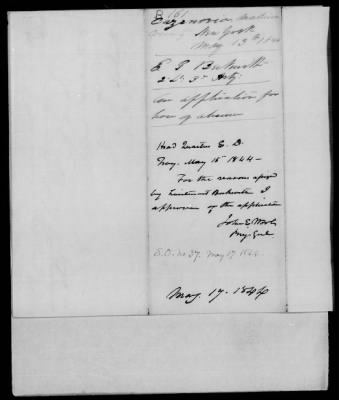 B 161
Cazenovia, Madison
New York
May 13th 1844
E G Beckwith
2 Lt 3d Arty
an application for
leave of absence
Head Quarters E. D.
Troy. May 15 1844 -
For the reasons
by Lieutenant Beckwith I
approve of the application
John E Wool
Brig Genl
S.O. no 37. May 17. 1844.
May 17. 1844